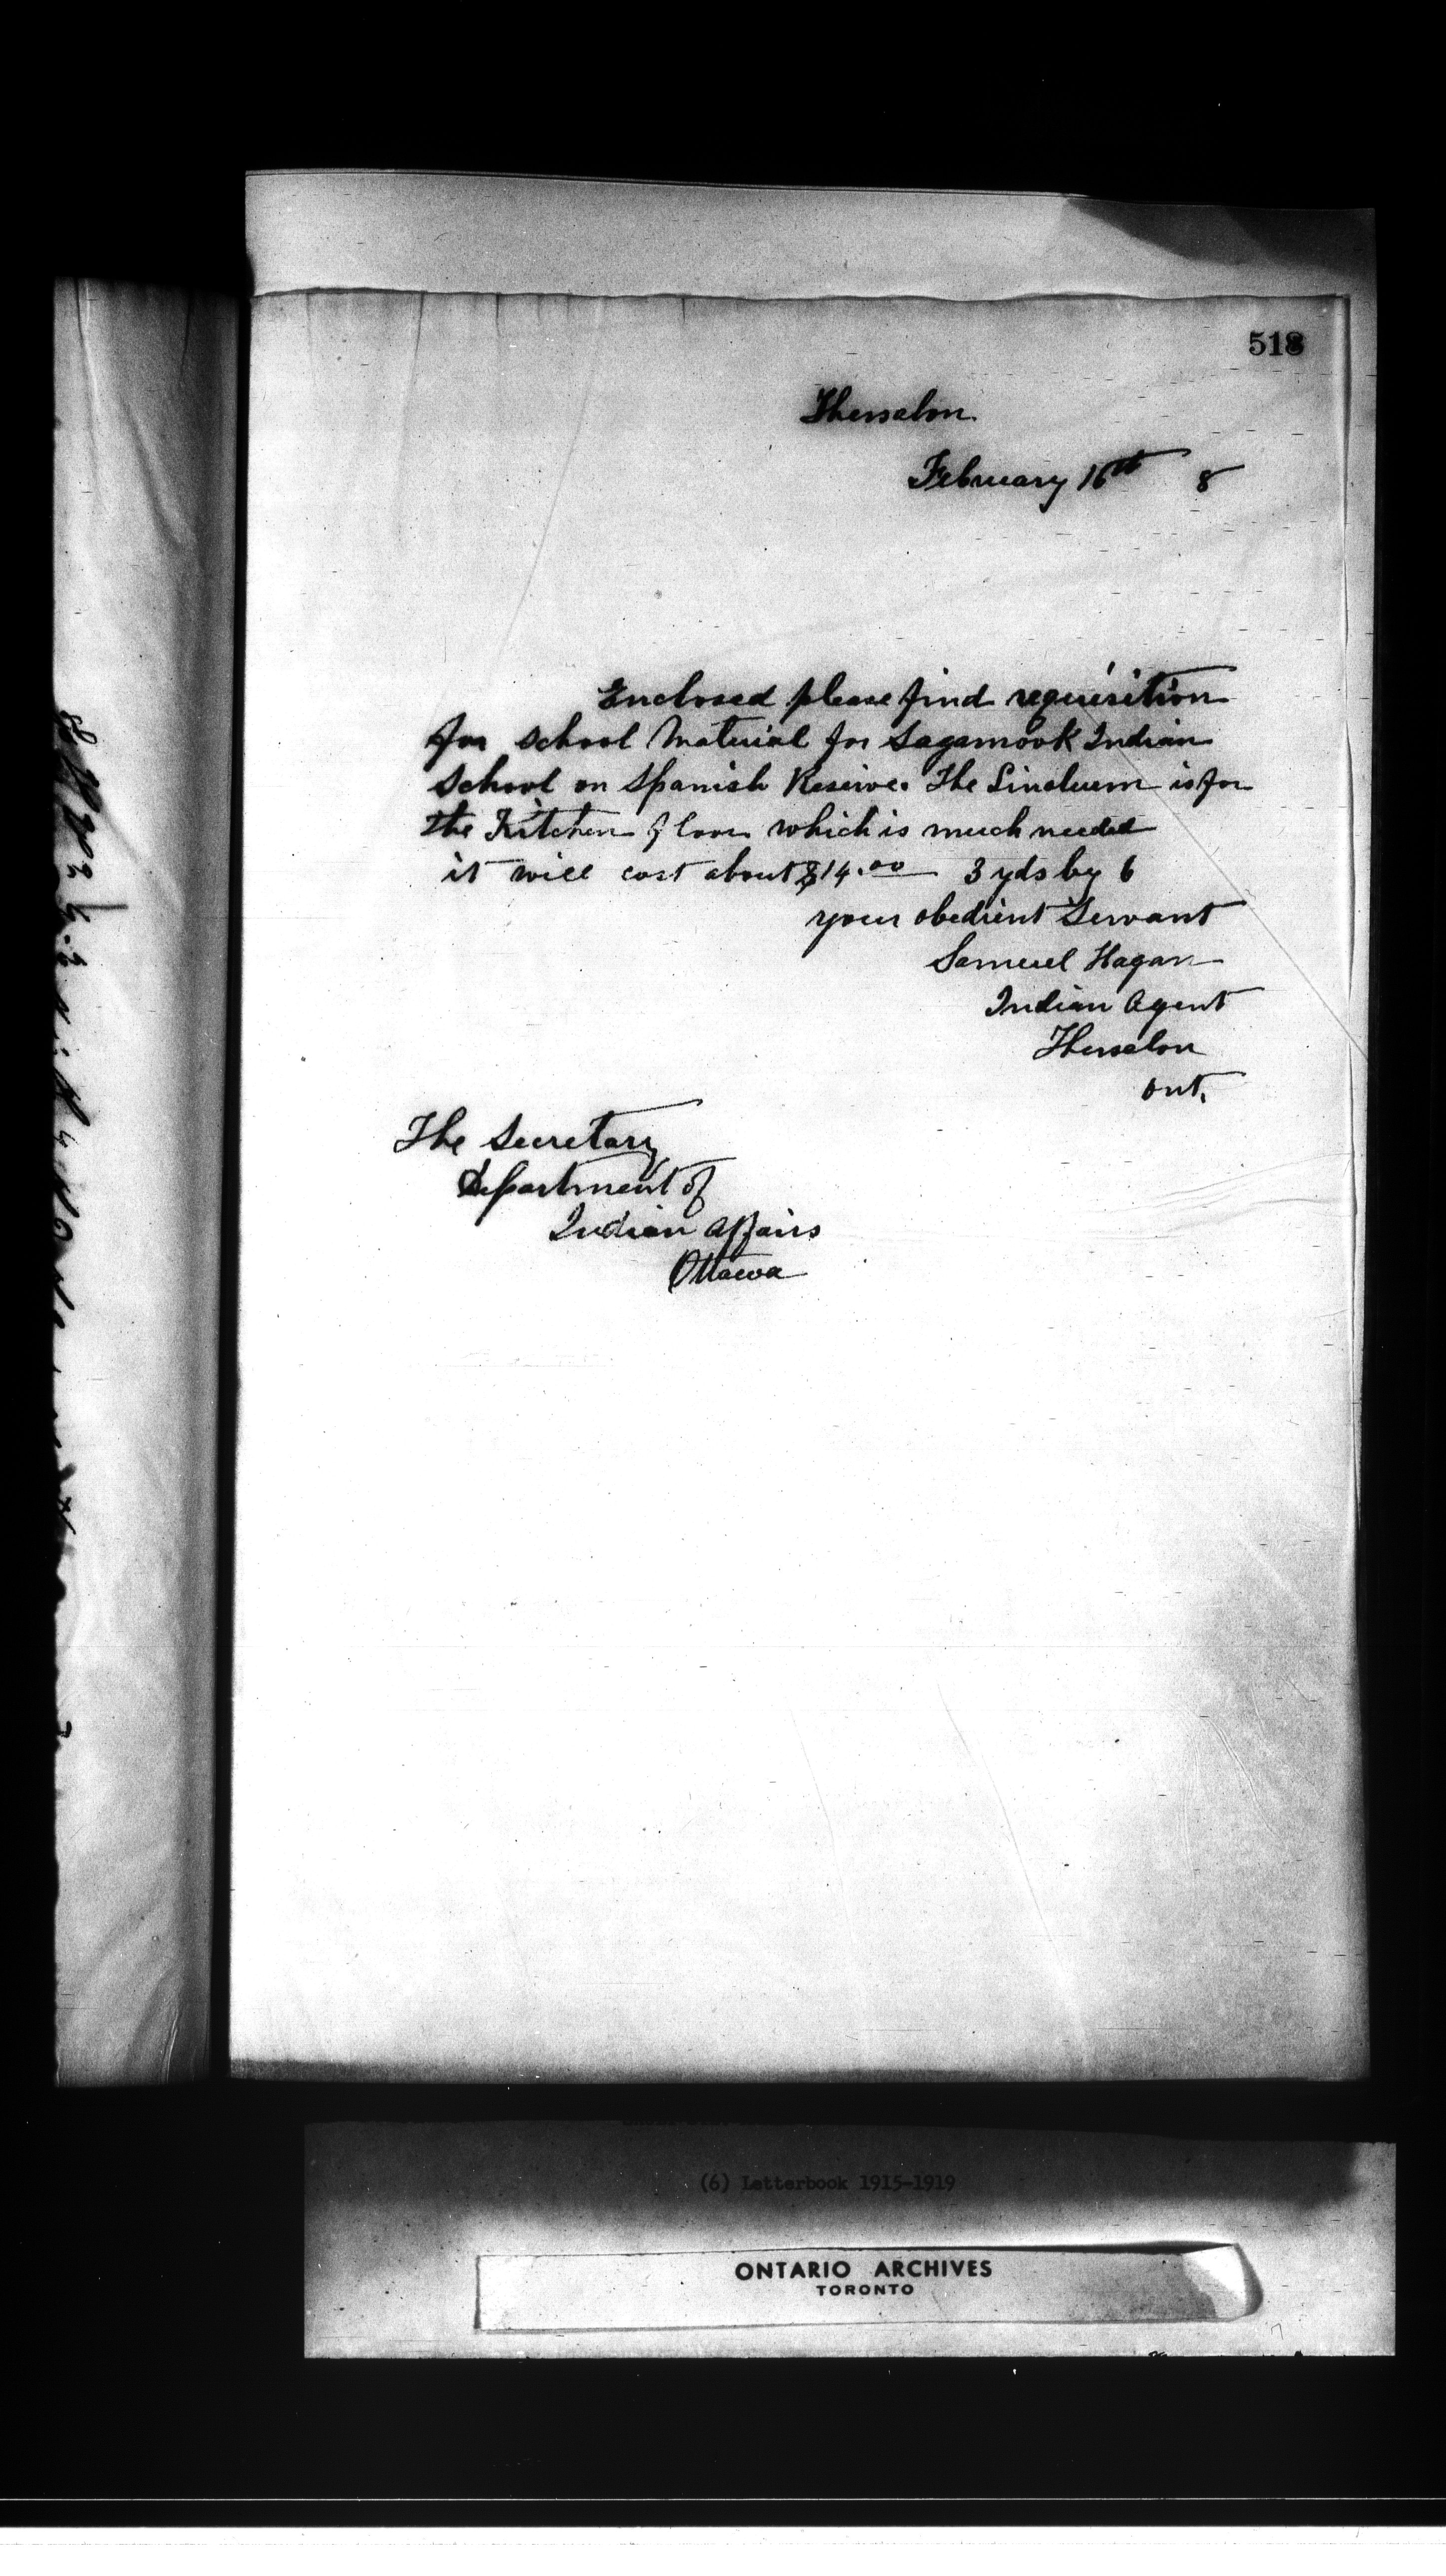 518
Thessalon
February 16th 8
Enclosed please find requisition
for School Material for Sagamook Indian
School on Spanish Reserve. The Linoleum is for
the Kitchen floor which is much needed
it will cost about $14.00 3 yds by 6
your obedient Servant
Samuel Hagan
Indian Agent
Thessalon
Ont.
The Secretary
Department of
Indian Affairs
Ottawa
(6) Letterbook 1915-1919
ONTARIO ARCHIVES
TORONTO